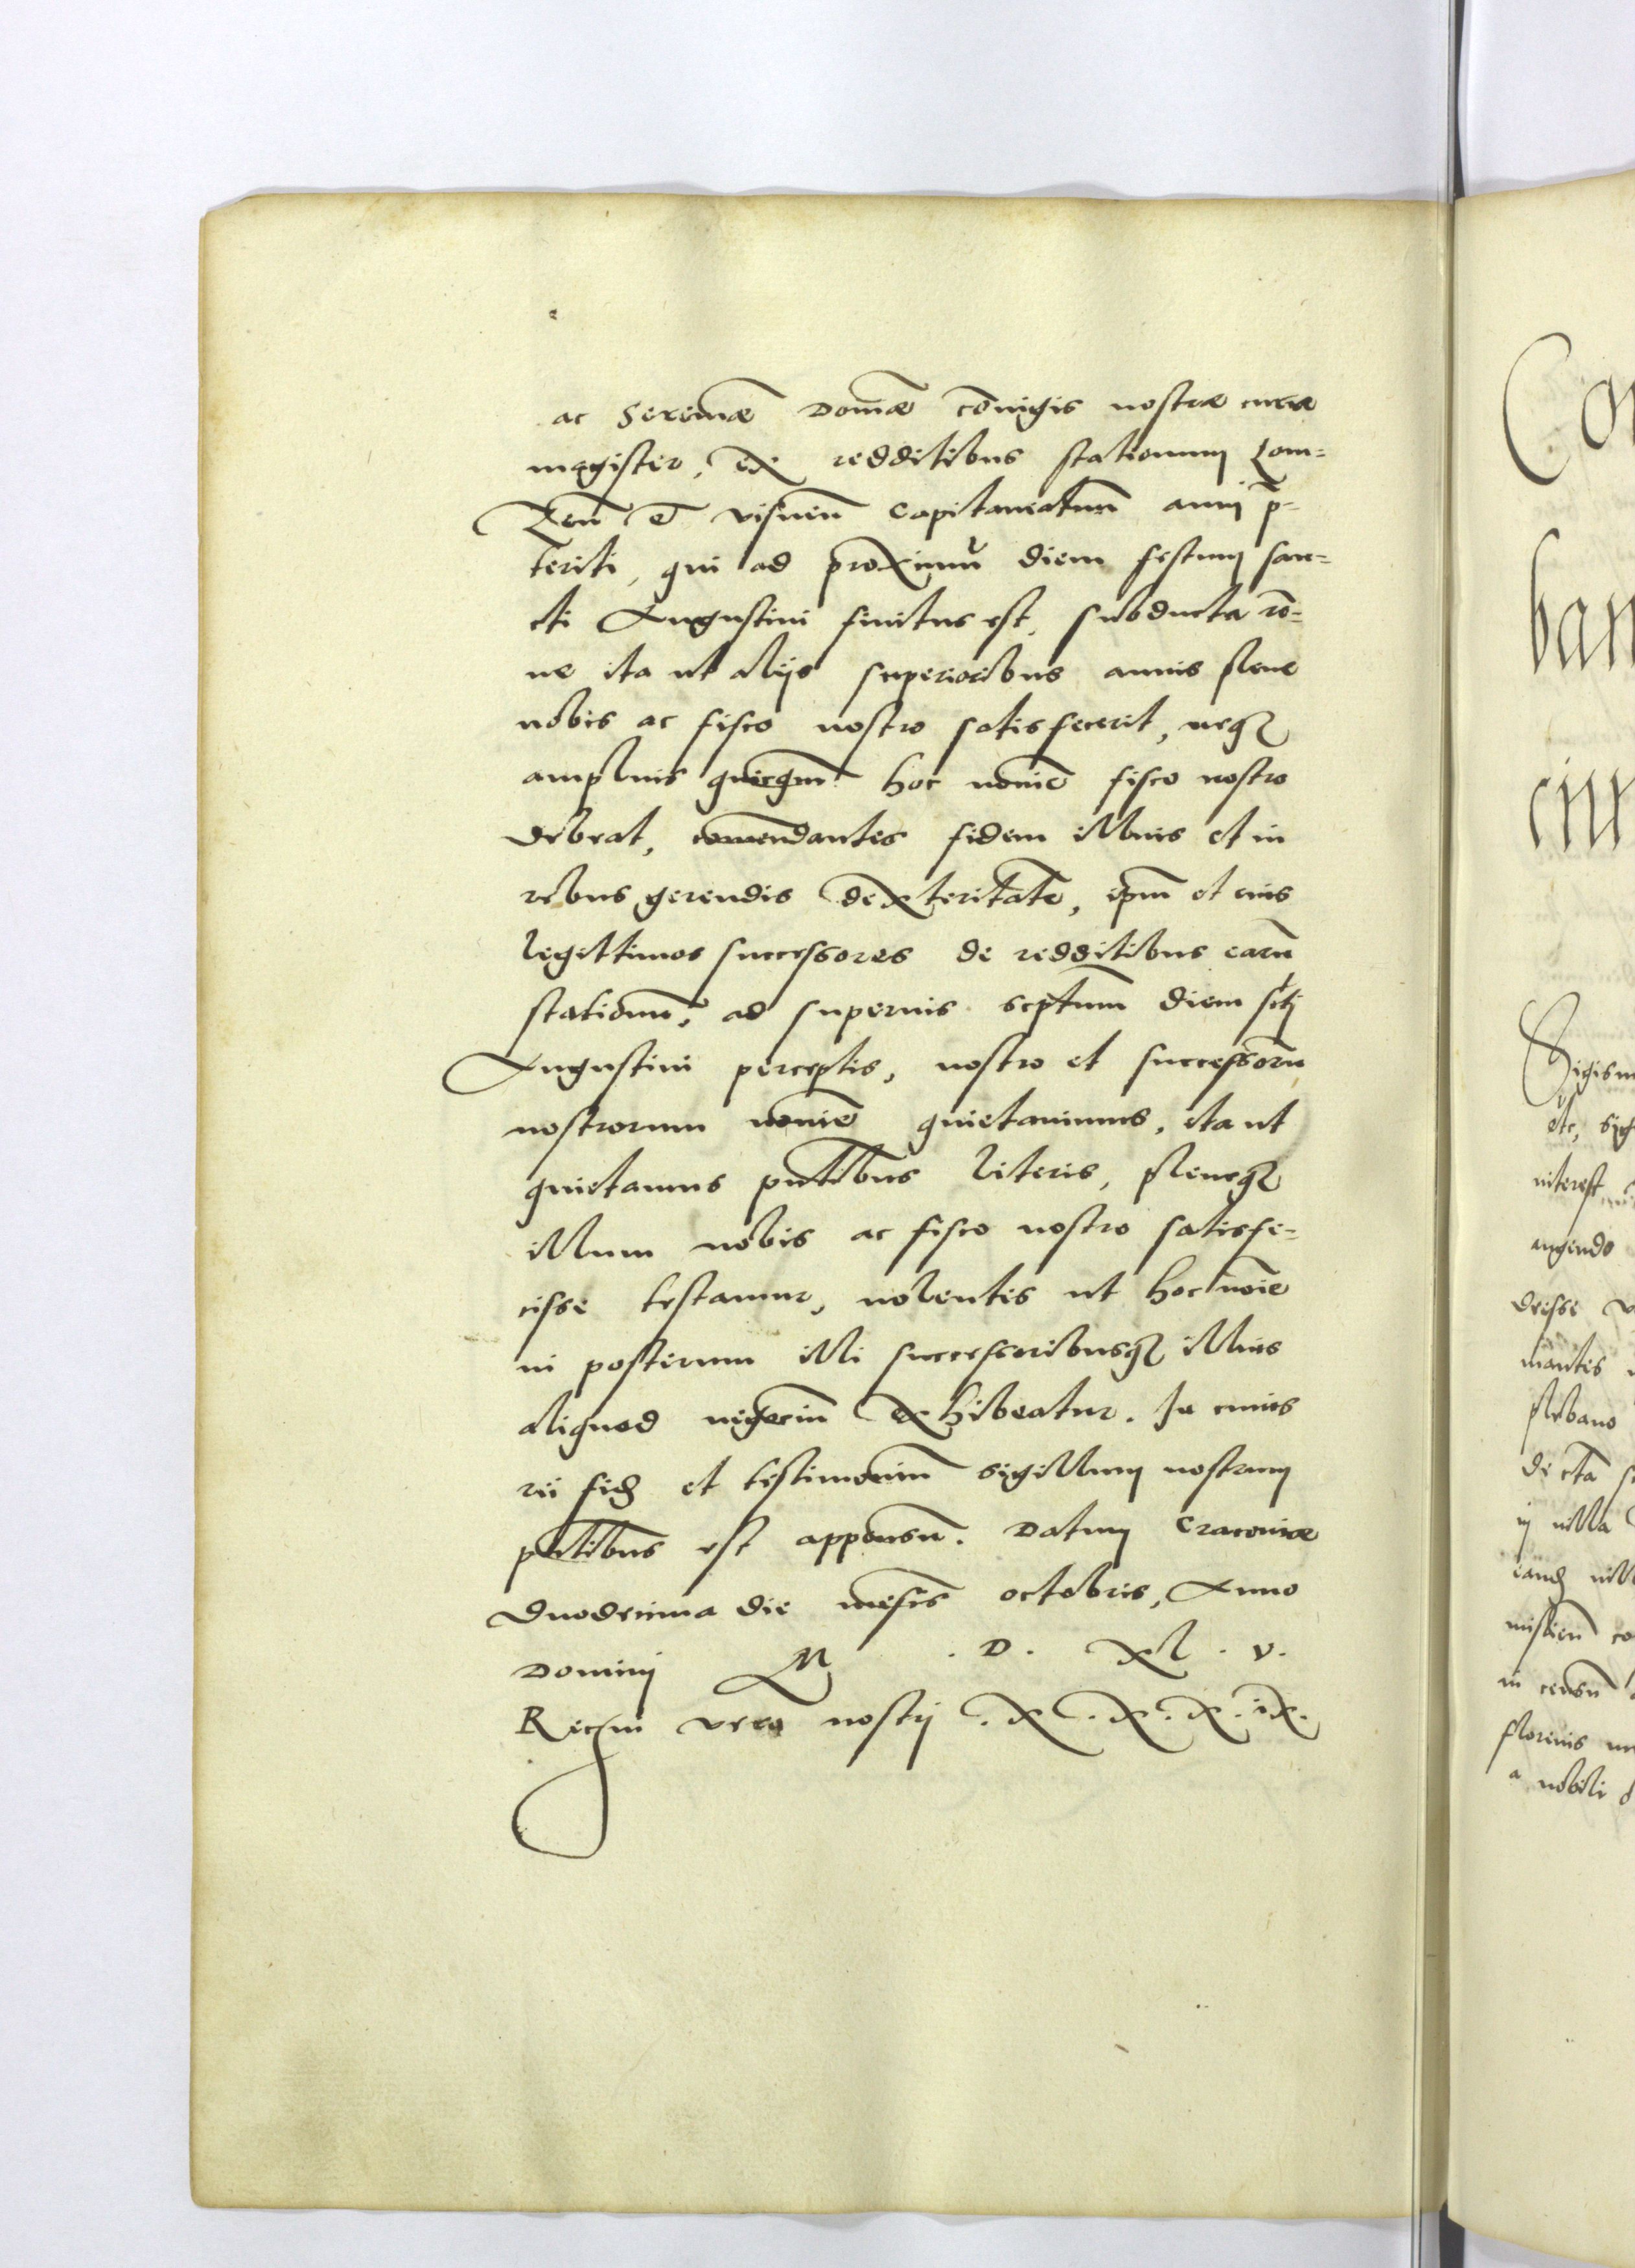 ac Serenmæ Domæ coniugis nostræ curiæ
magister, ex redditibus stationum Lom=
zen et visnen Capitaneatum anni p=
teriti, qui ad proximu diem festum san=
cti Augustini finitus est, subducta ro=
ne ita ut alijs superioribus annis plene
nobis ac fisco nostro satisfecerit, neq3
amplius quicqm hoc nomie fisco nostro
debeat, comendantes fidem illius et in
rebus gerendis dexteritate, ipm et eius
legittimos successores de redditibus earu
stationu, ad superius scptum diem scti
Augustini perceptis, nostro et successoru
nostrorum nomie quietauimus, ita ut
quietamus pntibus literis, pleneq3
illum nobis ac fisco nostro satisfe=
cisse testamur, nolentes ut hoc noie
in posterum illi successoribusq3 illius
aliquod negociu exhibeatur. In cuius
rei fidē et testimoniu sigillum nostrum
pntibus est appensu. Datum Cracouiæ
duodecima die mesis octobris, Anno
Domini M . D . XL . V .
Regni vero nostri . X . X . X . IX .
Con
ban
cin
Sigism
etc, sig
interest
augendo
desse
mantes
plebano
dicta
in villa
eandē vill
missien co
in censu
florenis
a nobili d